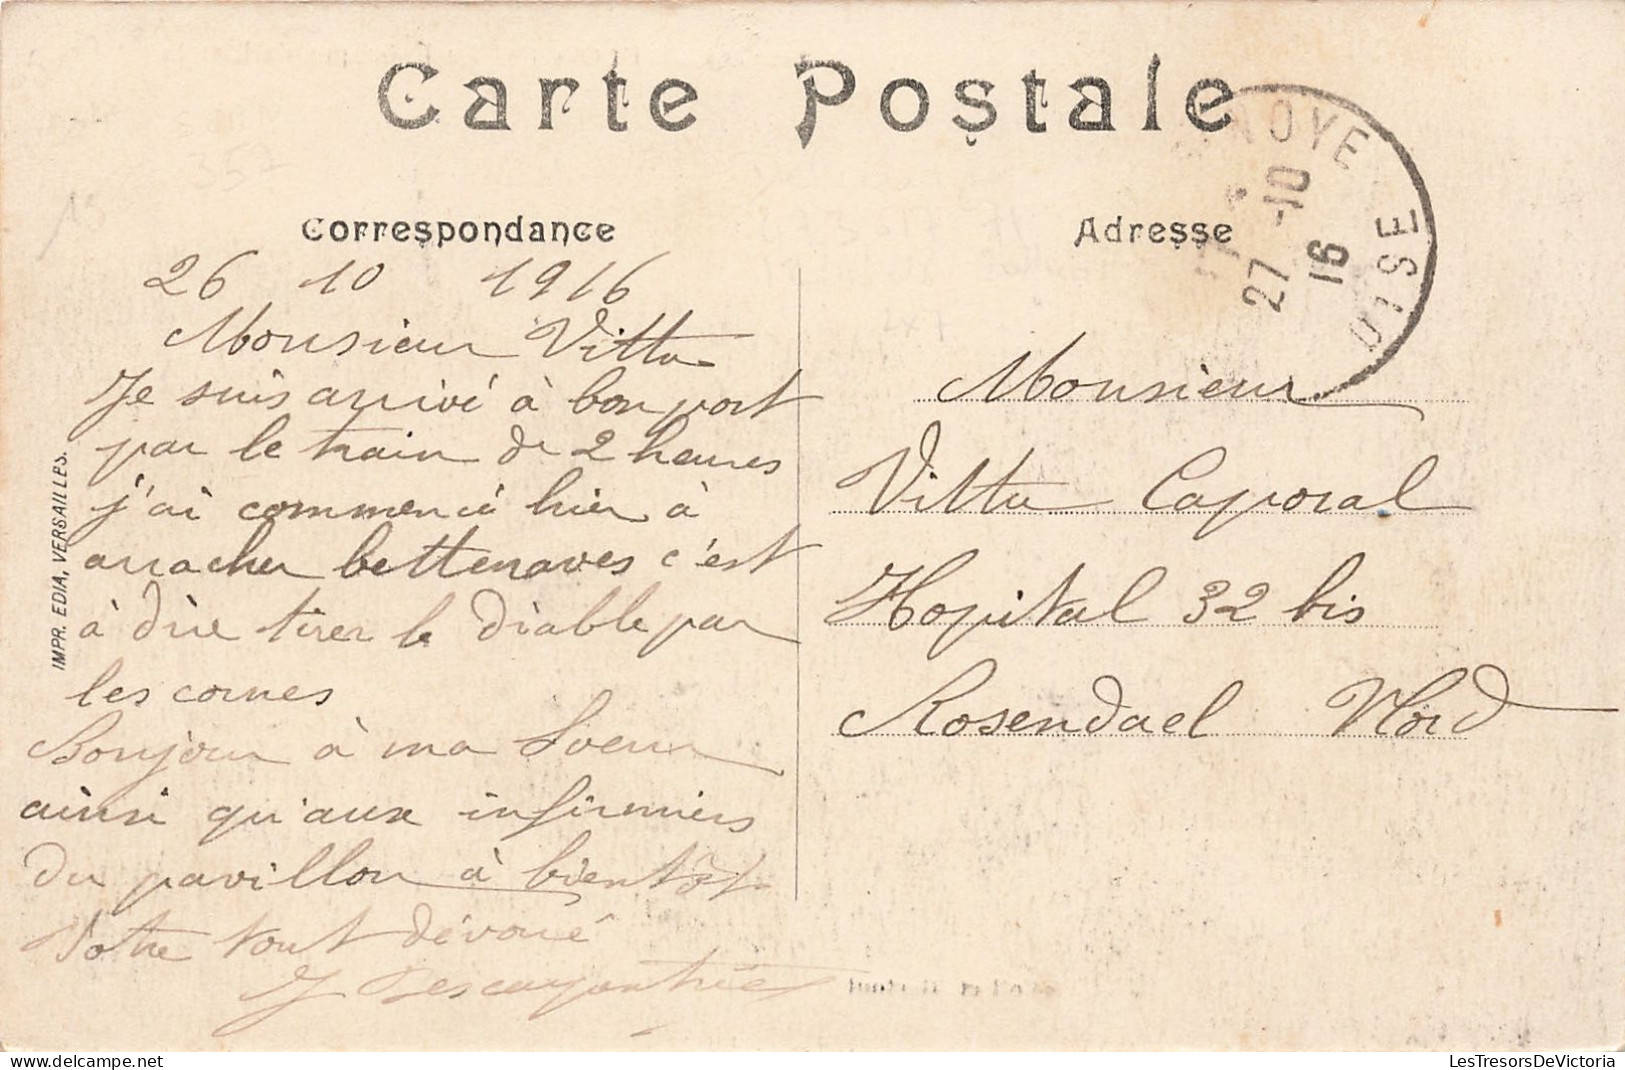 Carte Postale
Correspondance
26 10 1916
Monsieur Vittu
Je suis arrivé à bon port
par le train de 2 heures
j'ai commencé hier à
arracher bettenaves c'est
à dire tirer le diable par
les cornes
Bonjour à ma Soeur
ainsi qu'aux infirmiers
du pavillon à bientôt
Votre tout dévoué
IMPR. EDIA, VERSAILLES.
Adresse
NOYE
27 -10
16
OISE
Monsieur
Vittu Caporal
Hopital 32 bis
Rosendael Nord
LesTresorsDeVictoria